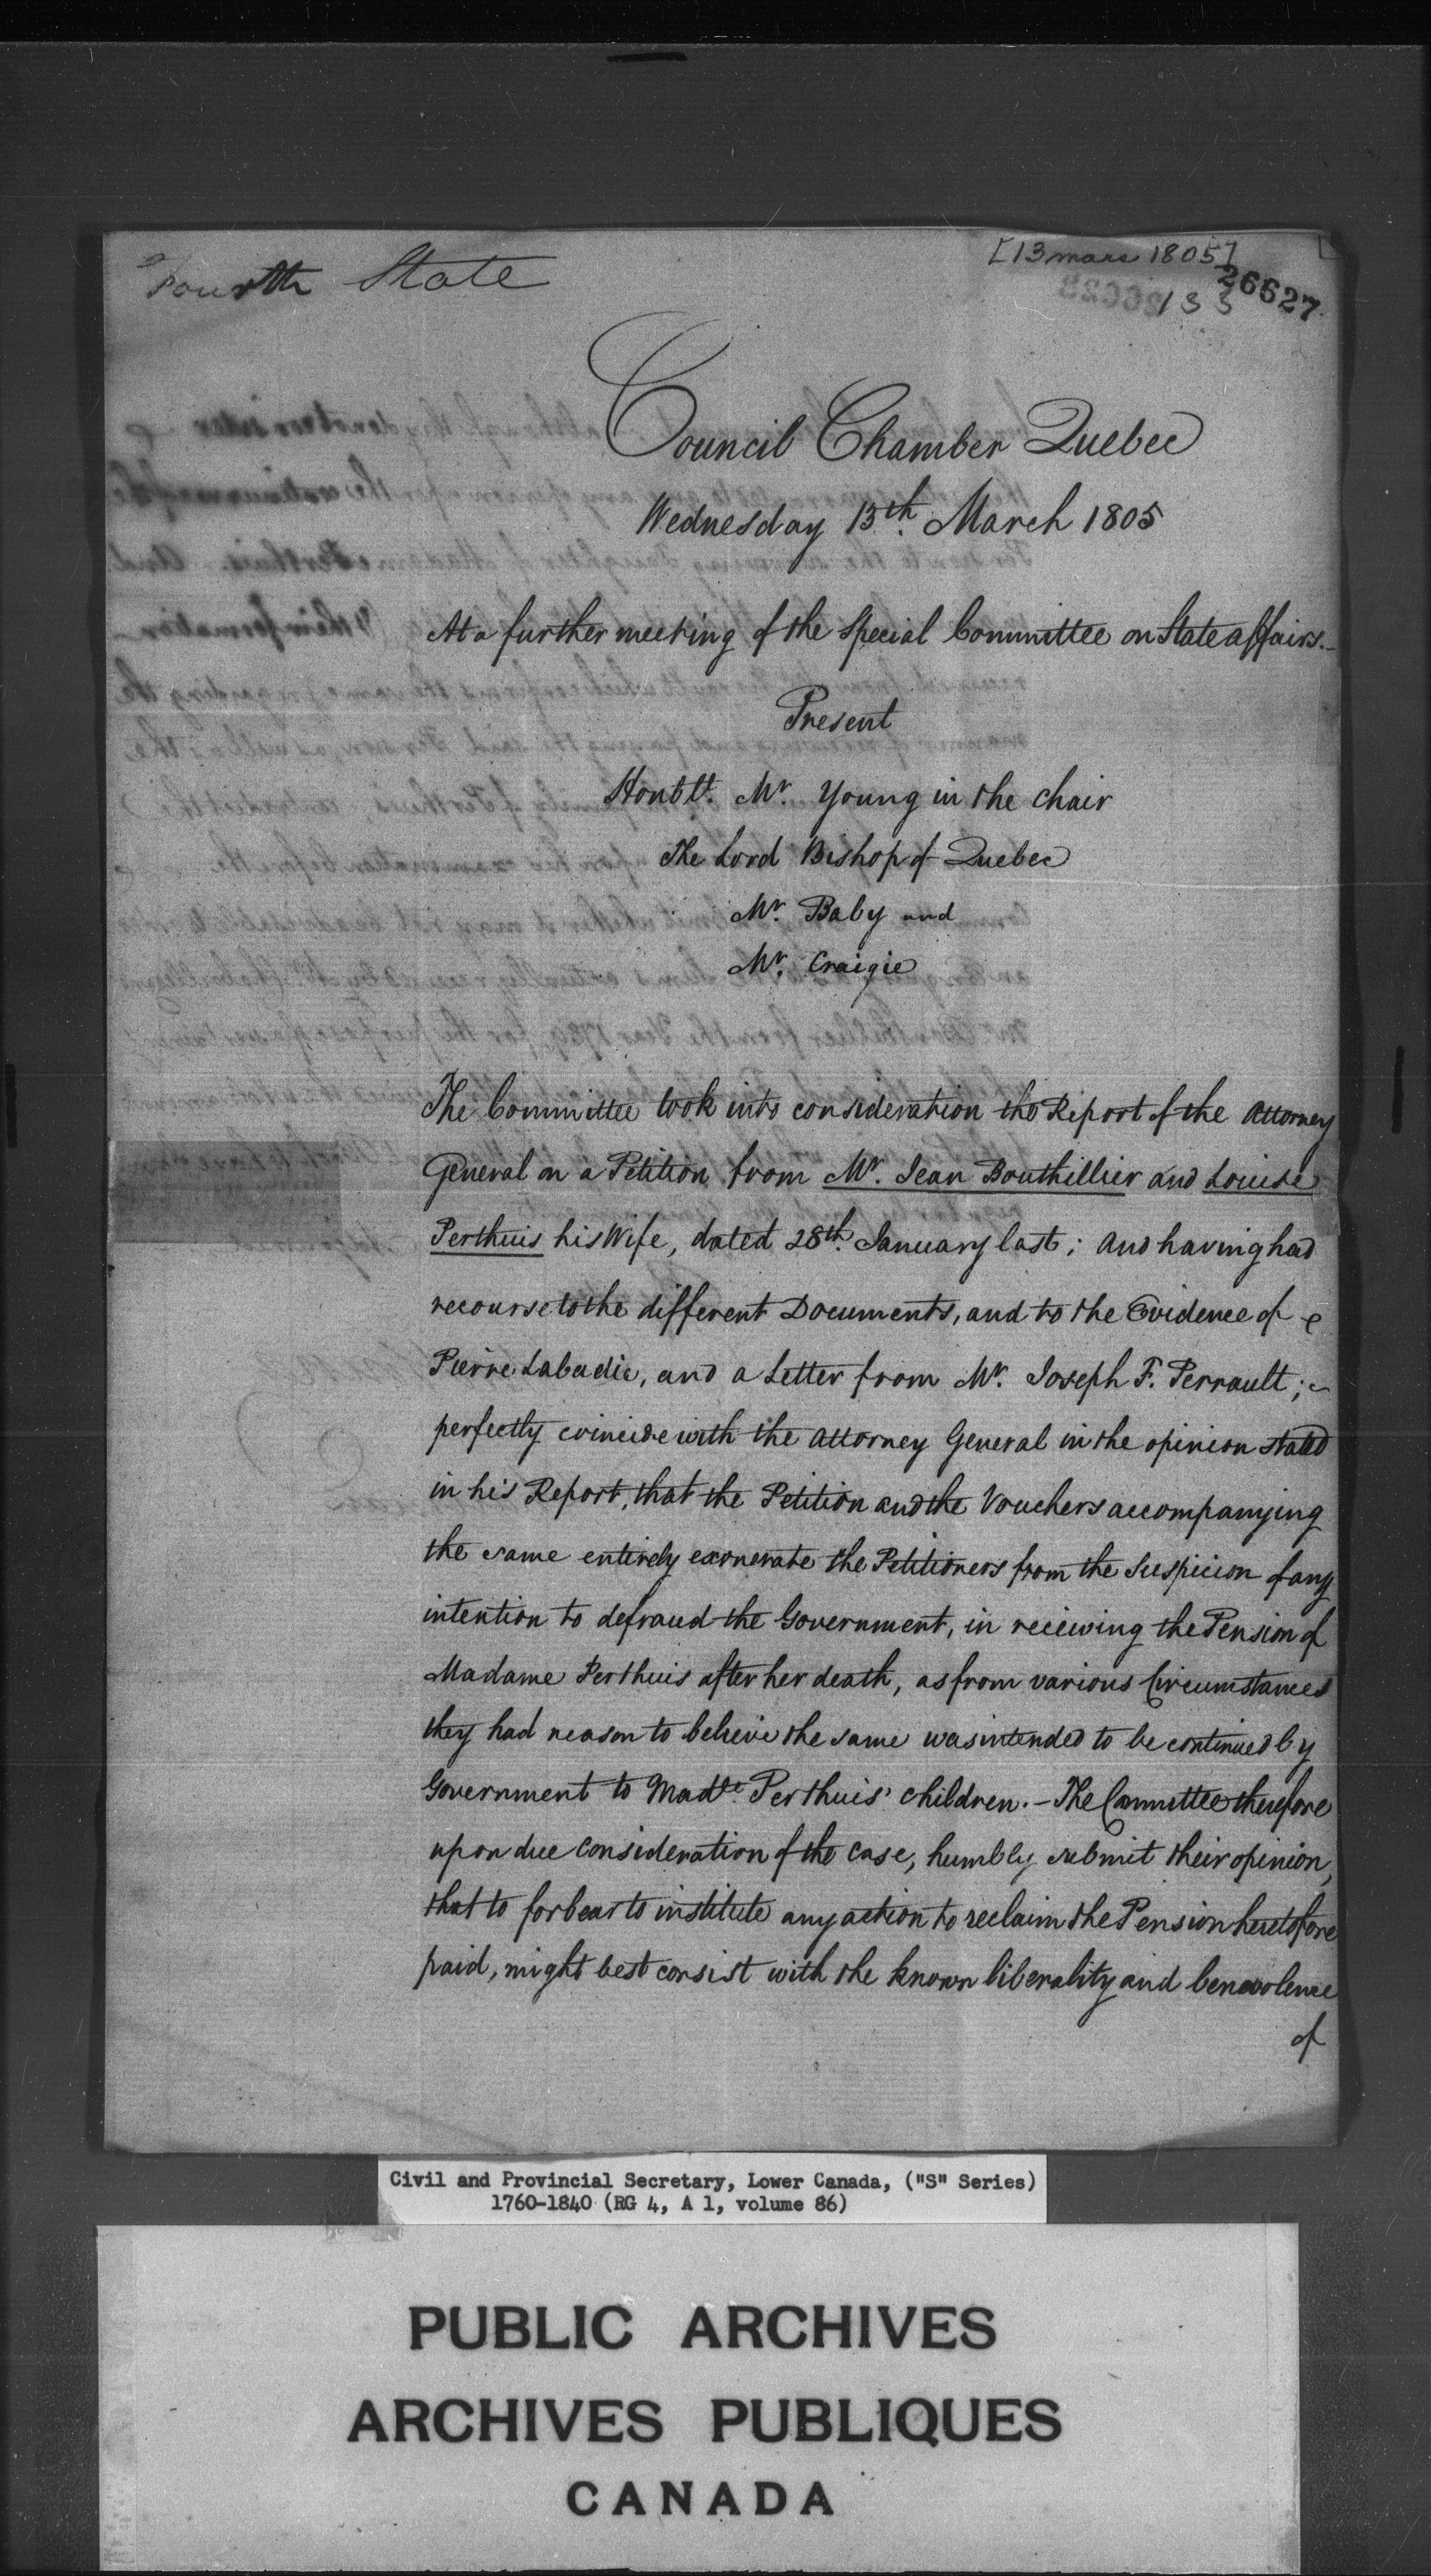 Fourth State
[13 mars 1805]
26627
133
Council Chamber Quebec
Wednesday 13th. March 1805
At a further meeting of the Special Committee on State affairs.
Present
Honble. Mr. Young in the chair
The Lord Bishop of Quebec
Mr. Baby and
Mr. Craigie
The Committee took into consideration the Report of the Attorney
General on a Petition from Mr. Jean Bouthillier and Louise
Perthuis his Wife, dated 28th. January last; and having had
recourse to the different Documents, and to the Evidence of
Pierre Labadie, and a Letter from Mr. Joseph F. Perrault;
perfectly coincide with the Attorney General in the opinion stated
in his Report, that the Petition and the Vouchers accompanying
the same entirely exonerate the Petitioners from the Suspicion of any
intention to defraud the Government, in receiving the Pension of
Madame Perthuis after her death, as from various Circumstances
they had reason to believe the same was intended to be continued by
Government to Made. Perthuis' children. - The Committee therefore
upon due consideration of the case, humbly submit their opinion,
that to forbear to institute any action to reclaim the Pension heretofore
paid, might best consist with the known liberality and benevolence
of
Civil and Provincial Secretary, Lower Canada, ("S" Series)
1760-1840 (RG 4, A 1, volume 86)
PUBLIC ARCHIVES
ARCHIVES PUBLIQUES
CANADA